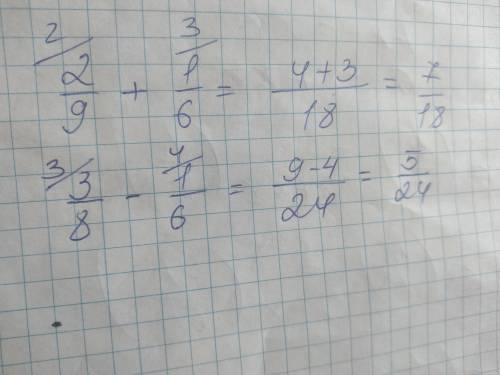 2/ 2/9 + 3/ 1/6 = 4+3/18 = 7/18
3/ 3/8 - 4/ 1/6 = 9-4/24 = 5/24